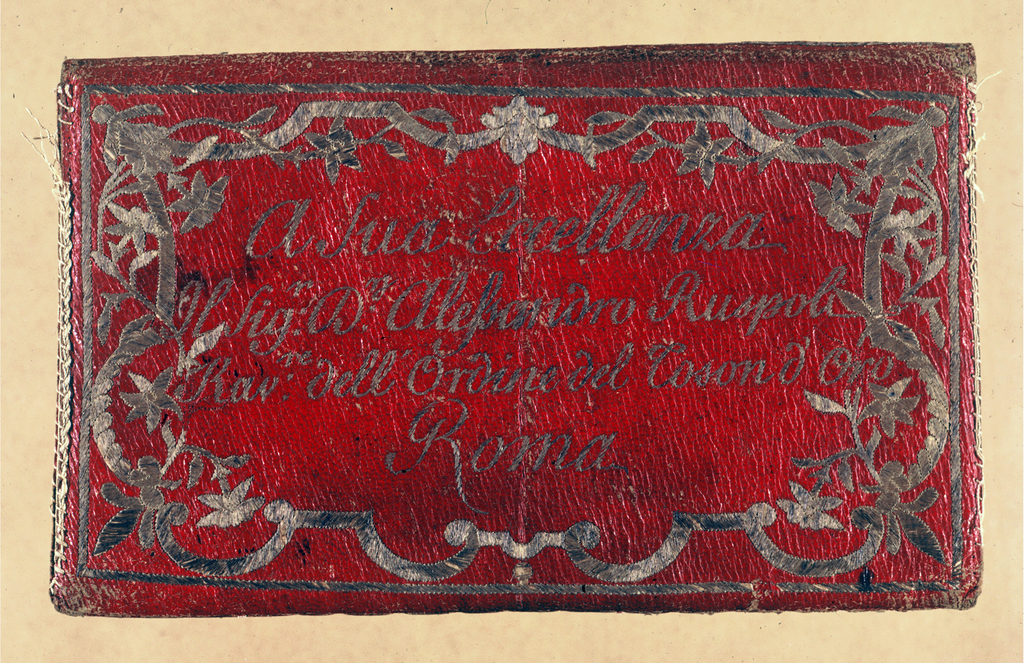 A Sua Eccellenza
Il Sig.r D.n Aleßandro Ruspoli
Kav.re dell' Ordine del Toson d' Oro
Roma